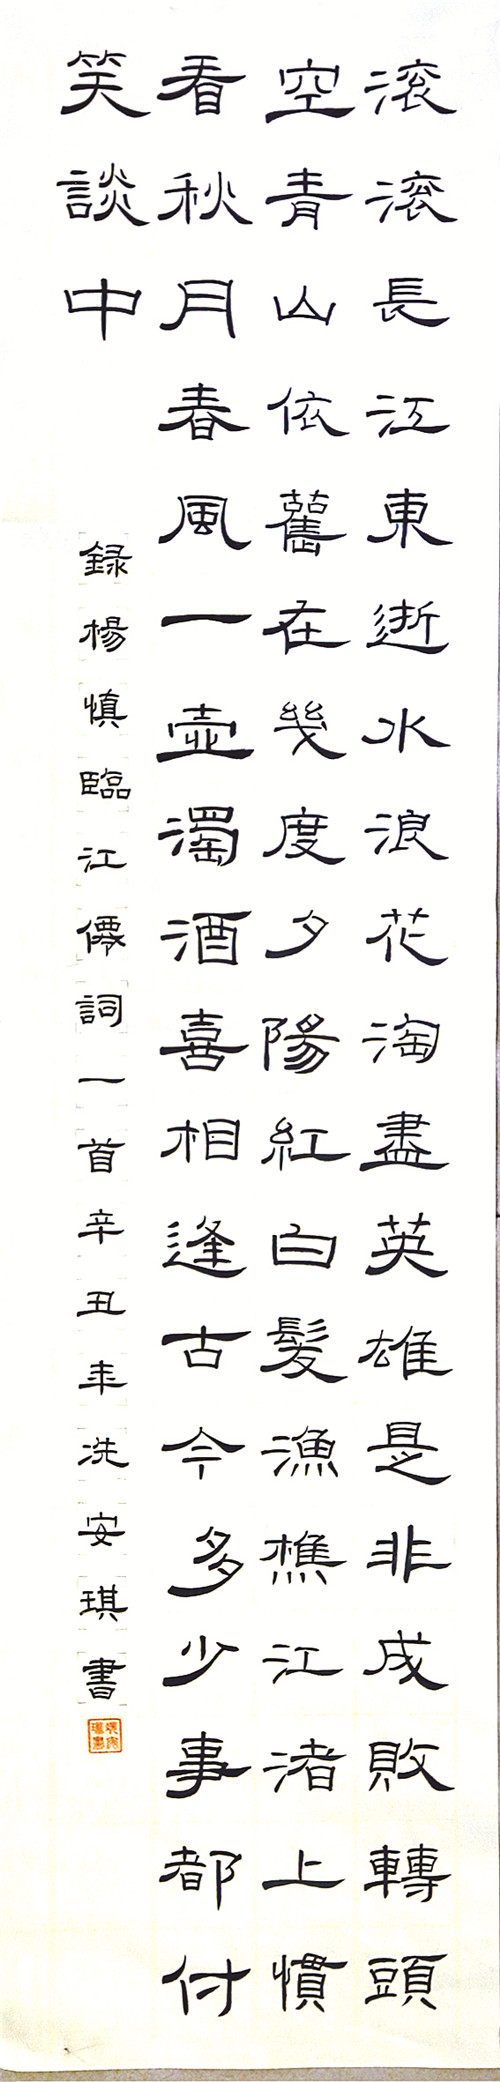 滚滚長江東逝水浪花淘盡英雄是非成敗轉頭
空青山依舊在幾度夕陽紅白髮漁樵江渚上慣
看秋月春風一壺濁酒喜相逢古今多少事都付
笑談中
録楊慎臨江僊詞一首辛丑年冼安琪書